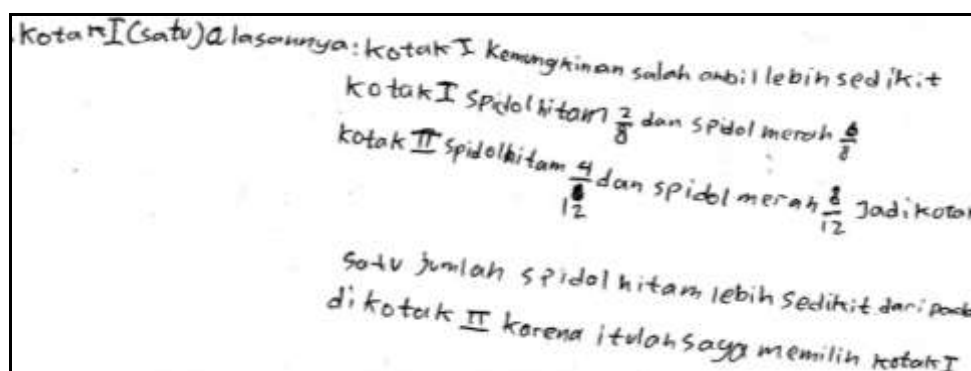 .Kotak I (satu) alasannya: kotak I kemungkinan salah ambil lebih sedikit
kotak I spidol hitam 2/8 dan spidol merah 6/8
kotak II spidol hitam 4/12 dan spidol merah 8/12 Jadi kotak
satu jumlah spidol hitam lebih sedikit dari pada
di kotak II karena itulah saya memilih kotak I